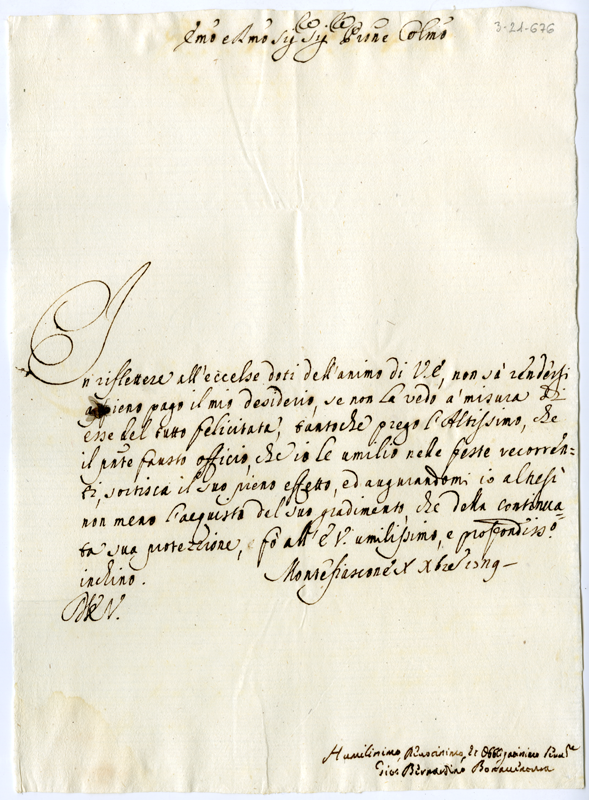 3-21-676
Emo e Rmo Sig Sig Prone Colmo
In riflettere all'eccelse doti dell'animo di V. E., non sà rendersi
appieno pago il mio desiderio, se non la vedo a' misura di
esse del tutto felicitata; tantoche prego l'Altissimo, che
il pnte fausto officio, che io le umilio nelle feste recorren=
ti, sortisca il suo pieno effetto, ed augurandomi io altresì
non meno l'acquisto del suo gradimento, che della continua=
ta sua protezzione, fò all' E. V. umilissimo, e profondisso
inchino.
Montefiascone X Xbre
D V. E.
Humilissimo, Devotissimo, et Obbligatissimo Serv.re
Gios Bernardino Bonaventura